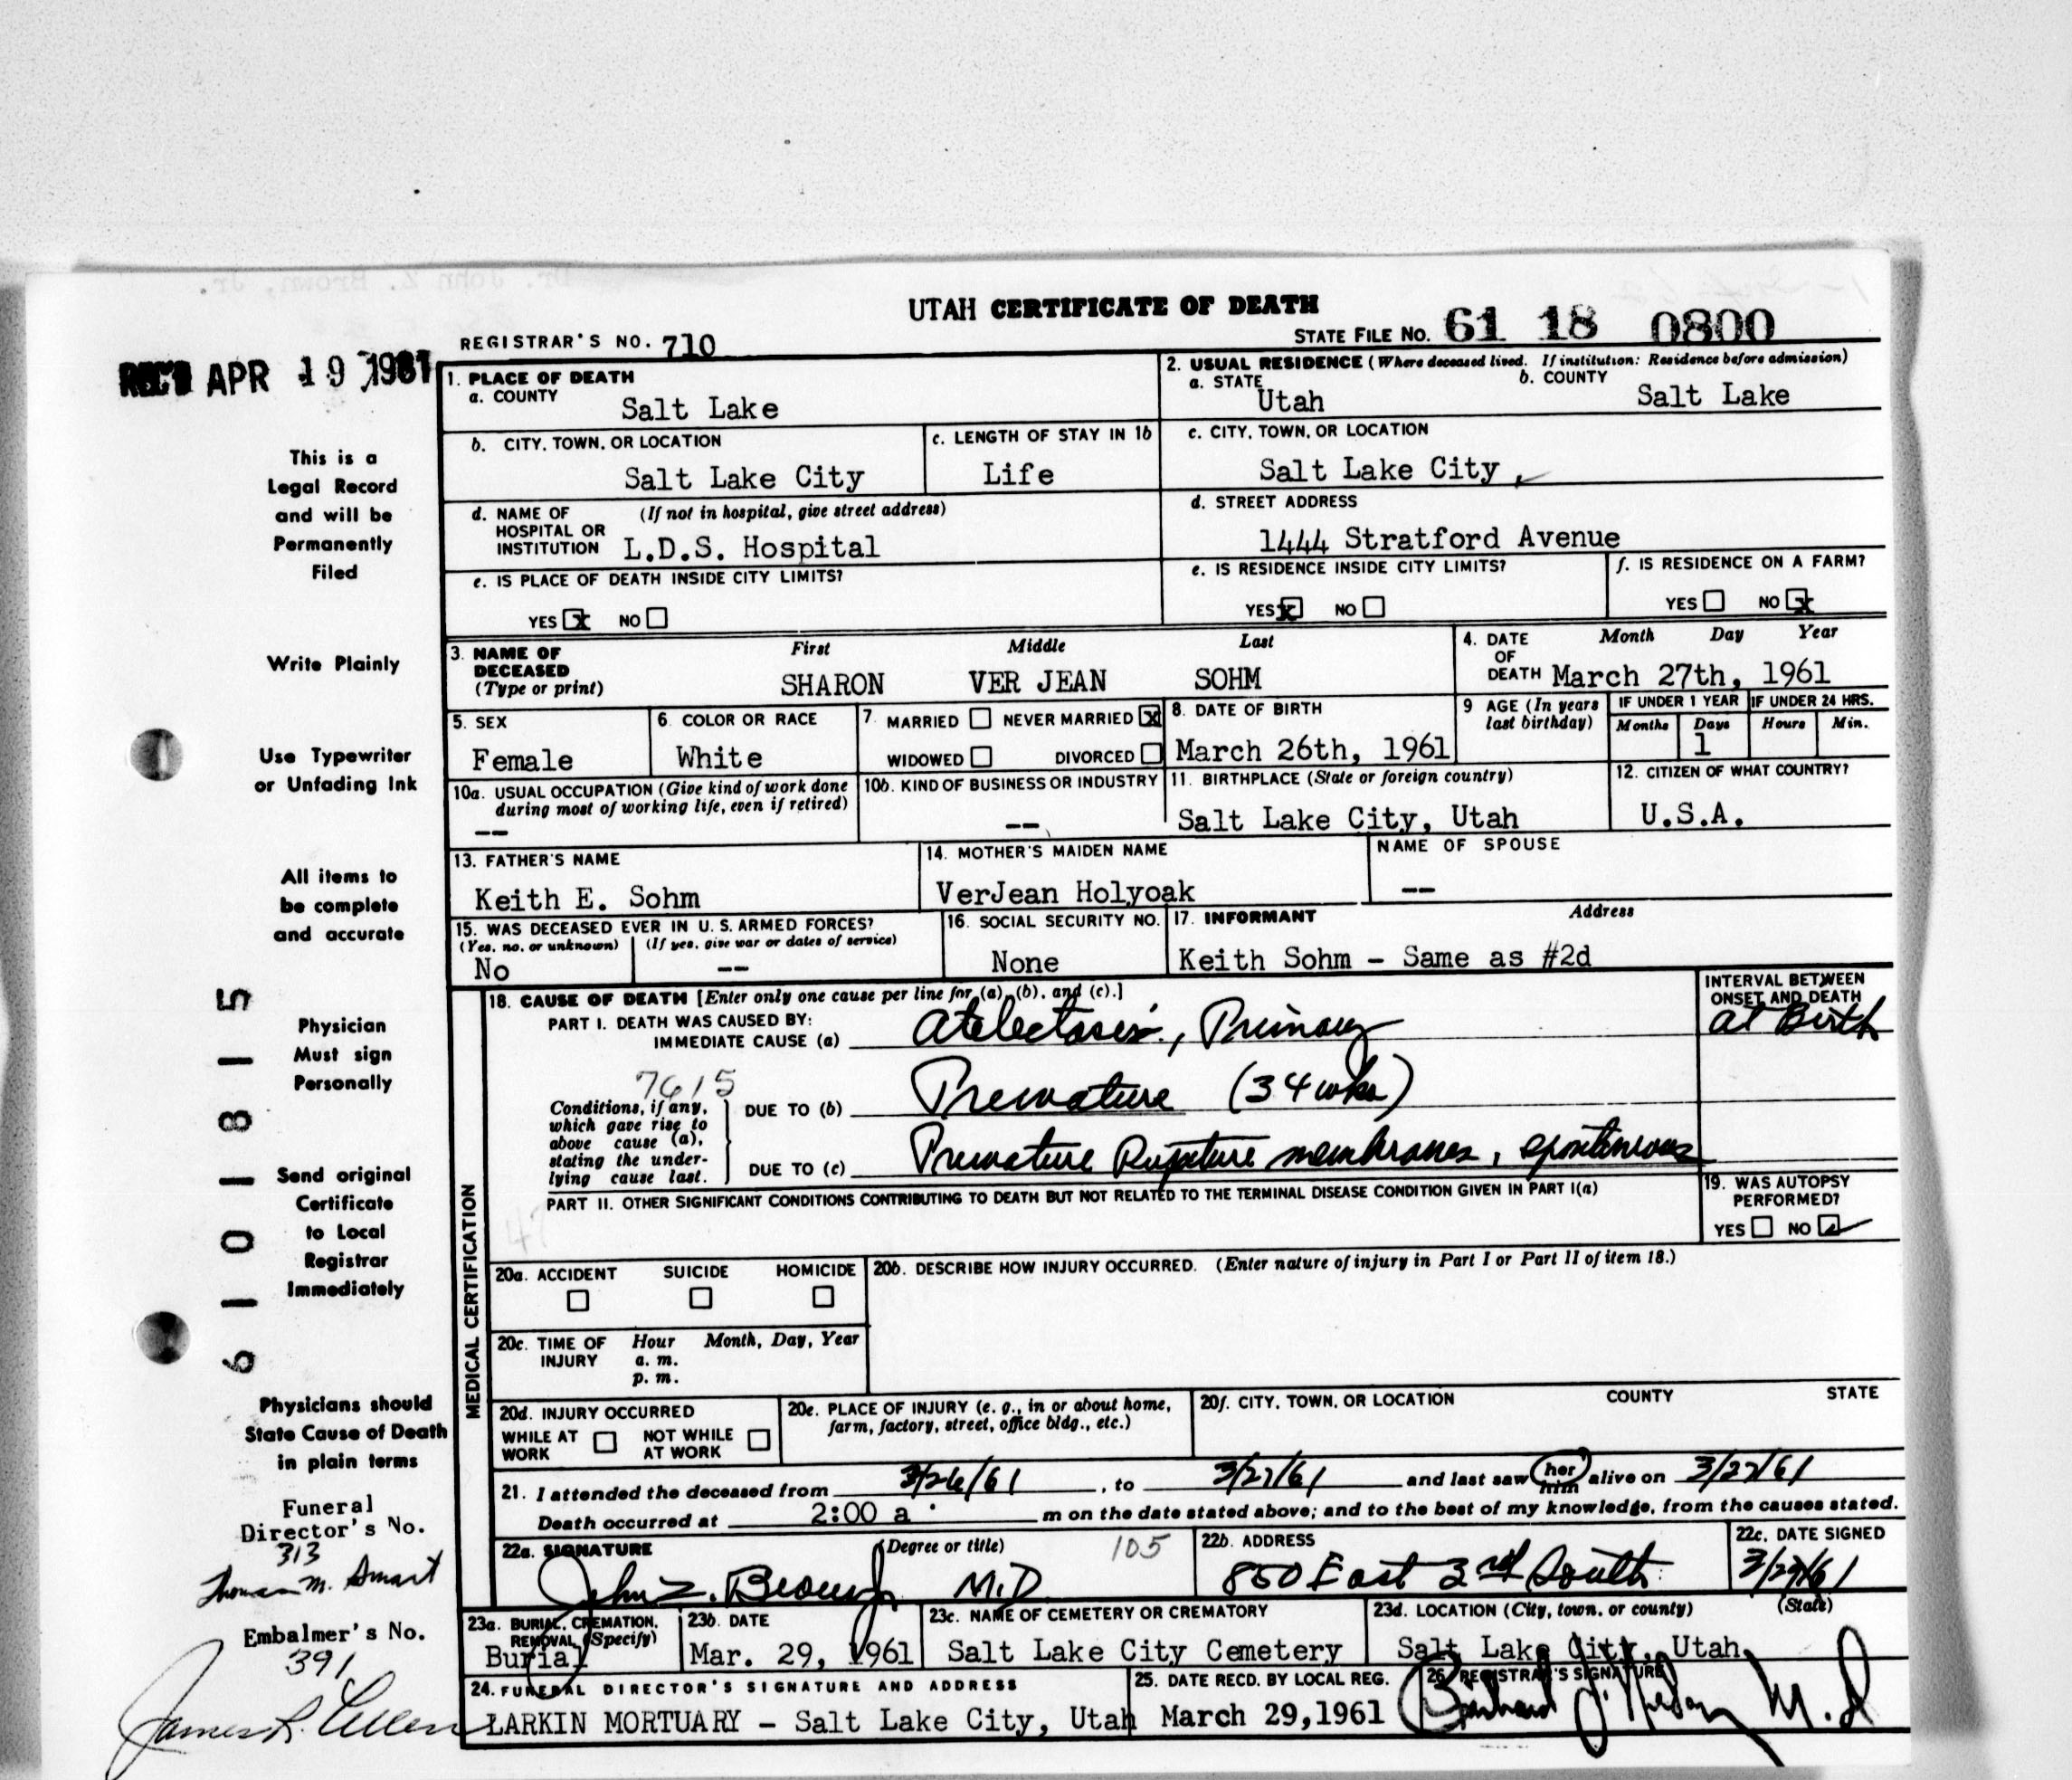 UTAH CERTIFICATE OF DEATH
REGISTRAR'S NO. 710
STATE FILE NO. 61 18 0800
REC'D APR 19 1961
1. PLACE OF DEATH
a. COUNTY
Salt Lake
2. USUAL RESIDENCE (Where deceased lived. If institution: Residence before admission)
a. STATE
Utah
b. COUNTY
Salt Lake
b. CITY, TOWN, OR LOCATION
Salt Lake City
c. LENGTH OF STAY IN 1b
Life
c. CITY, TOWN, OR LOCATION
Salt Lake City,
d. NAME OF HOSPITAL OR INSTITUTION
(If not in hospital, give street address)
L.D.S. Hospital
d. STREET ADDRESS
1444 Stratford Avenue
e. IS PLACE OF DEATH INSIDE CITY LIMITS?
YES x NO
e. IS RESIDENCE INSIDE CITY LIMITS?
YES x NO
f. IS RESIDENCE ON A FARM?
YES NO x
3. NAME OF DECEASED
(Type or print)
First Middle Last
SHARON VER JEAN SOHM
4. DATE OF DEATH
Month Day Year
March 27th, 1961
5. SEX
Female
6. COLOR OR RACE
White
7. MARRIED NEVER MARRIED X
WIDOWED DIVORCED
8. DATE OF BIRTH
March 26th, 1961
9 AGE (In years last birthday)
IF UNDER 1 YEAR
Months Days
1
IF UNDER 24 HRS.
Hours Min.
10a. USUAL OCCUPATION (Give kind of work done during most of working life, even if retired)
--
10b. KIND OF BUSINESS OR INDUSTRY
--
11. BIRTHPLACE (State or foreign country)
Salt Lake City, Utah
12. CITIZEN OF WHAT COUNTRY?
U.S.A.
13. FATHER'S NAME
Keith E. Sohm
14. MOTHER'S MAIDEN NAME
VerJean Holyoak
NAME OF SPOUSE
--
15. WAS DECEASED EVER IN U.S. ARMED FORCES?
(Yes, no, or unknown) (If yes, give war or dates of service)
No --
16. SOCIAL SECURITY NO.
None
17. INFORMANT Address
Keith Sohm - Same as #2d
MEDICAL CERTIFICATION
18. CAUSE OF DEATH [Enter only one cause per line for (a), (b), and (c).]
PART I. DEATH WAS CAUSED BY:
IMMEDIATE CAUSE (a) Atelectasis, Primary
INTERVAL BETWEEN ONSET AND DEATH
at Birth
7615
Conditions, if any, which gave rise to above cause (a), stating the underlying cause last.
DUE TO (b) Premature (34 wks)
DUE TO (c) Premature Rupture membranes, spontaneous
PART II. OTHER SIGNIFICANT CONDITIONS CONTRIBUTING TO DEATH BUT NOT RELATED TO THE TERMINAL DISEASE CONDITION GIVEN IN PART I(a)
47
19. WAS AUTOPSY PERFORMED?
YES NO
20a. ACCIDENT SUICIDE HOMICIDE
20b. DESCRIBE HOW INJURY OCCURRED. (Enter nature of injury in Part I or Part II of item 18.)
20c. TIME OF INJURY
Hour Month, Day, Year
a. m.
p. m.
20d. INJURY OCCURRED
WHILE AT WORK NOT WHILE AT WORK
20e. PLACE OF INJURY (e. g., in or about home, farm, factory, street, office bldg., etc.)
20f. CITY, TOWN, OR LOCATION COUNTY STATE
21. I attended the deceased from 3/26/61, to 3/27/61 and last saw her him alive on 3/27/61
Death occurred at 2:00 a m on the date stated above; and to the best of my knowledge, from the causes stated.
22a. SIGNATURE (Degree or title)
John Z. Brown Jr M.D
105
22b. ADDRESS
850 East 3rd South
22c. DATE SIGNED
3/27/61
23a. BURIAL, CREMATION, REMOVAL (Specify)
Burial
23b. DATE
Mar. 29, 1961
23c. NAME OF CEMETERY OR CREMATORY
Salt Lake City Cemetery
23d. LOCATION (City, town, or county) (State)
Salt Lake City, Utah
24. FUNERAL DIRECTOR'S SIGNATURE AND ADDRESS
LARKIN MORTUARY - Salt Lake City, Utah
25. DATE RECD. BY LOCAL REG.
March 29,1961
26. REGISTRAR'S SIGNATURE
M.D
This is a
Legal Record
and will be
Permanently
Filed
Write Plainly
Use Typewriter
or Unfading Ink
All items to
be complete
and accurate
Physician
Must sign
Personally
Send original
Certificate
to Local
Registrar
Immediately
Physicians should
State Cause of Death
in plain terms
Funeral
Director's No.
313
Thomas M. Smart
Embalmer's No.
391
James R.
6 1 0 1 8 1 5
Dr. John Z. Brown, Jr.